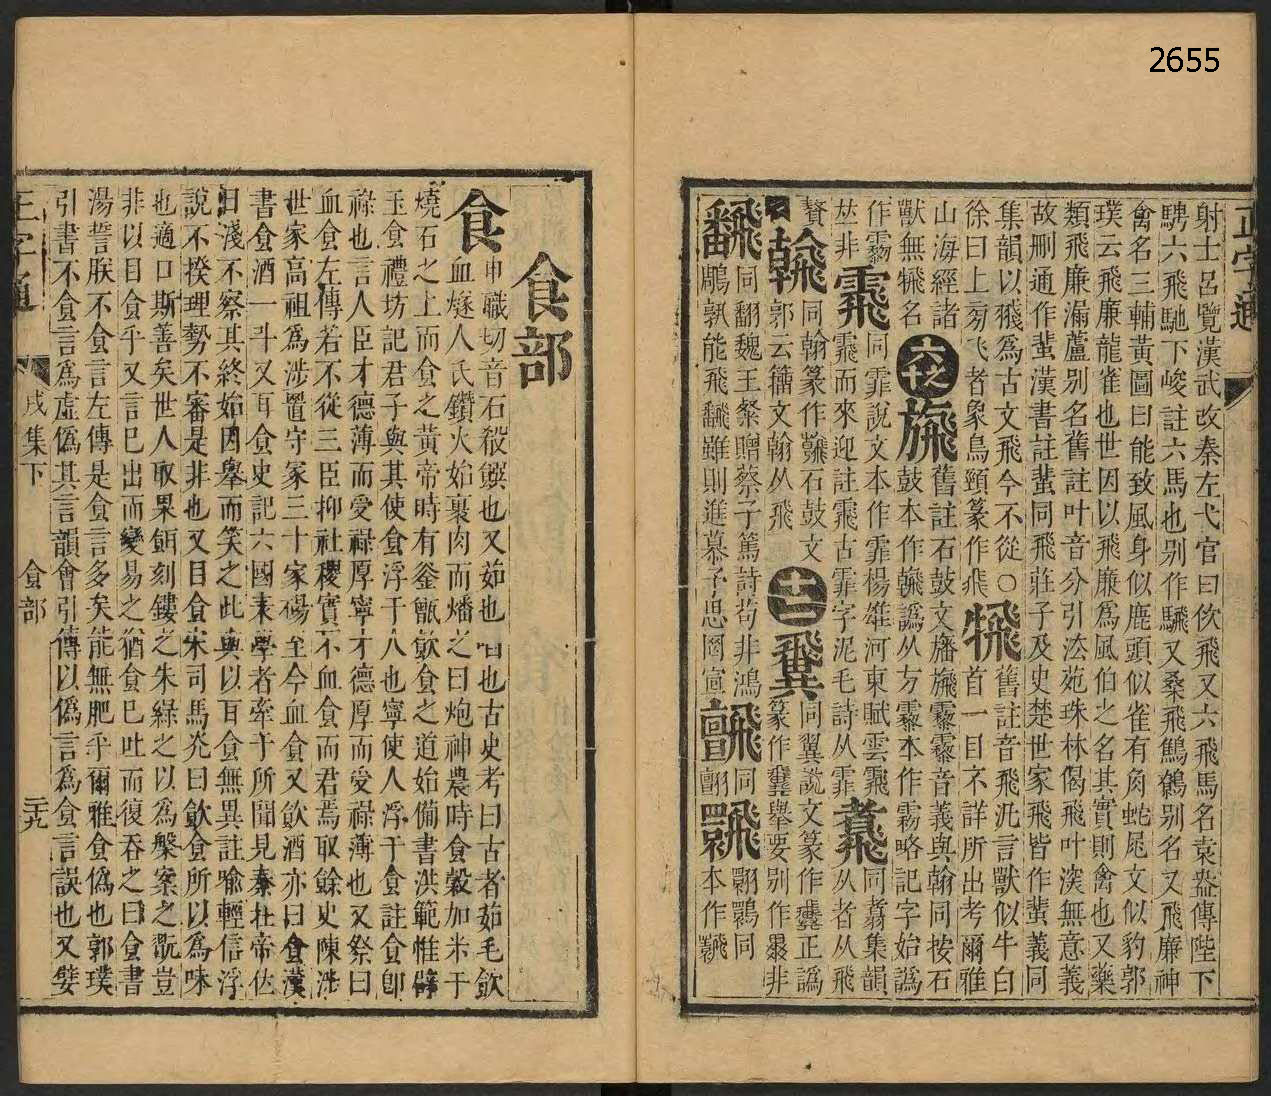 2655
正字通
射士呂覽漢武改秦左弋官曰佽飛又六飛馬名袁盎傳陛下
騁六飛馳下峻註六馬也别作騛又桑飛鷦鷯别名又飛廉神
禽名三輔黃圖曰能致風身似鹿頭似雀有角蛇尾文似豹郭
璞云飛廉龍雀也世因以飛廉爲風伯之名其實則禽也又藥
類飛廉漏蘆别名舊註叶音分引法苑珠林偈飛叶深無意義
故刪通作蜚漢書註蜚同飛莊子及史楚世家飛皆作蜚義同
集韻以飝爲古文飛今不從○
舊註音飛汎言獸似牛白
徐曰上旁飞者象鳥頸篆作飛
首一目不詳所出考爾雅
山海經諸
獸無犤名
六之十
舊註石鼓文旛旐靈靈音義與翰同按石
鼓本作䮧譌从方靈本作霧略記字始譌
作靄
𠀤非
同霏說文本作霏楊雄河東賦雲霏
霏而來迎註䬠古霏字泥毛詩从霏
同翥集韻
从者从飛
贅
同翰篆作䮧石鼓文
郭云籒文翰从飛
十二
同翼說文篆作𩙺正譌
篆作𩙺舉要别作㬥非
翻
同翻魏王粲贈蔡子篤詩苟非鴻
鵰孰能飛飜雖則進慕予思罔宣
同
翾
翾鸜同
本作
食部
食
申職切音石殺饌也又茹也啗也古史考曰古者茹毛飲
血燧人氏鑽火始裹肉而燔之曰炮神農時食穀加米于
燒石之上而食之黃帝時有釜甑飲食之道始備書洪範惟辟
玉食禮坊記君子與其使食浮于人也寧使人浮于食註食卽
祿也言人臣才德薄而受祿厚寧才德厚而受祿薄也又祭曰
血食左傳若不從三臣抑社稷實不血食而君焉取餘史陳涉
世家高祖爲涉置守冢三十家碭至今血食又飲酒亦曰食漢
書食酒一斗又耳食史記六國表學者牽于所聞見秦在帝位
日淺不察其終始因舉而笑之此與以耳食無異註喻輕信浮
說不揆理勢不審是非也又目食宋司馬光曰飲食所以爲味
也適口斯善矣世人取果餌刻鏤之朱綠之以爲槃案之翫豈
非以目食乎又言已出而變易之猶食已吐而復吞之曰食書
湯誓朕不食言左傳是食言多矣能無肥乎爾雅食僞也郭璞
引書不食言爲虛僞其言韻會引傳以僞言爲食言誤也又嬖
正字通
戌集下
食部
三九